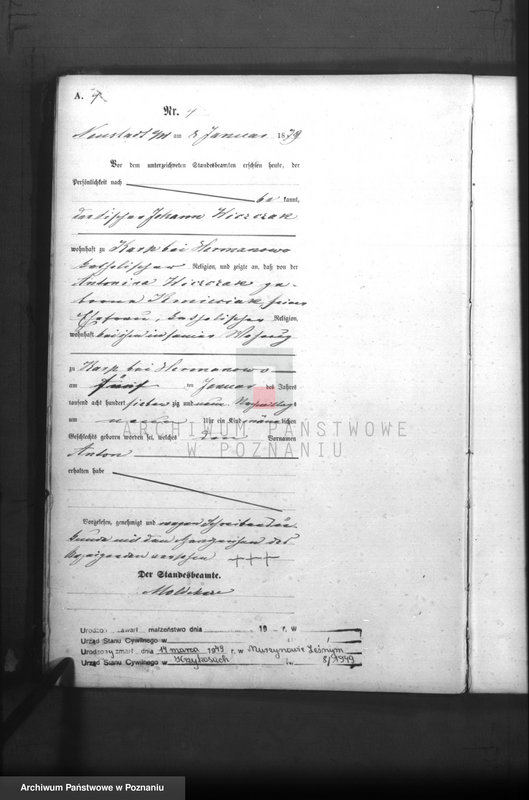 A.
Nr. 4
Neustadt a/W am 8 Januar 1879
Vor dem unterzeichneten Standesbeamten erschien heute, der
Persönlichkeit nach
be kannt,
der Tischler Johann Wieczorek
wohnhaft zu Karp bei Hermanowo
katholischer Religion, und zeigte an, daß von der
Antonina Wieczorek ge-
borne seiner
Ehefrau, katholischer Religion,
wohnhaft bei ihm in seiner Wohnung
zu Karp bei Hermanowo
am fünf ten Januar des Jahres
tausend acht hundert sieben zig und neun Vormittags
um Uhr ein Kind männlichen
Geschlechts geboren worden sei, welches den Vornamen
Anton
erhalten habe
Vorgelesen, genehmigt und wegen Schreibensun-
kunde mit den Handzeichen des
Anzeigenden versehen +++
Der Standesbeamte.
ARCHIWUM PAŃSTWOWE
W POZNANIU
zawarł małżeństwo dnia 19 r. w
Urząd Stanu Cywilnego w
zmarł dnia 14 marca 1949 r. w Murzynowie Leśnym
Urząd Stanu Cywilnego w Krzykosach 8/1949
Archiwum Państwowe w Poznaniu